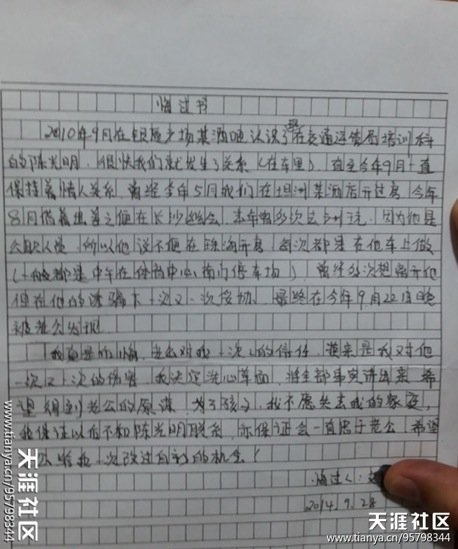 悔过书
2010年9月在银殿广场某酒吧认识了在交通运管局培训科
的陈光明，很快我们就发生了关系（在车里），直至今年9月一直
保持着情人关系，曾经去年5月我们在某酒店开过房，今年
8月借着出差之便在长沙，因为他是
公职人员，所以他说不便在开房，每次都是在他车上做
（一般都是中午在体育中心南门停车场），曾经多次想离开他
但在他的下一次又一次，最终在今年9月22日晚
被老公发现
我真是，老公对我一次次的信任，换来是我又对他
一次又一次的伤害，我决定洗心革面，将全部事实讲出来，希
望得到老公的原谅，为了孩子，我不愿失去我的家庭，
我保证以后不和陈光明联系，亦保证会一直忠于老公，希望
公给我一次改过自新的机会！
悔过人：
2014.9.28
天涯社区
www.tianya.cn/95798344
天涯社区
www.tianya.cn/95798344